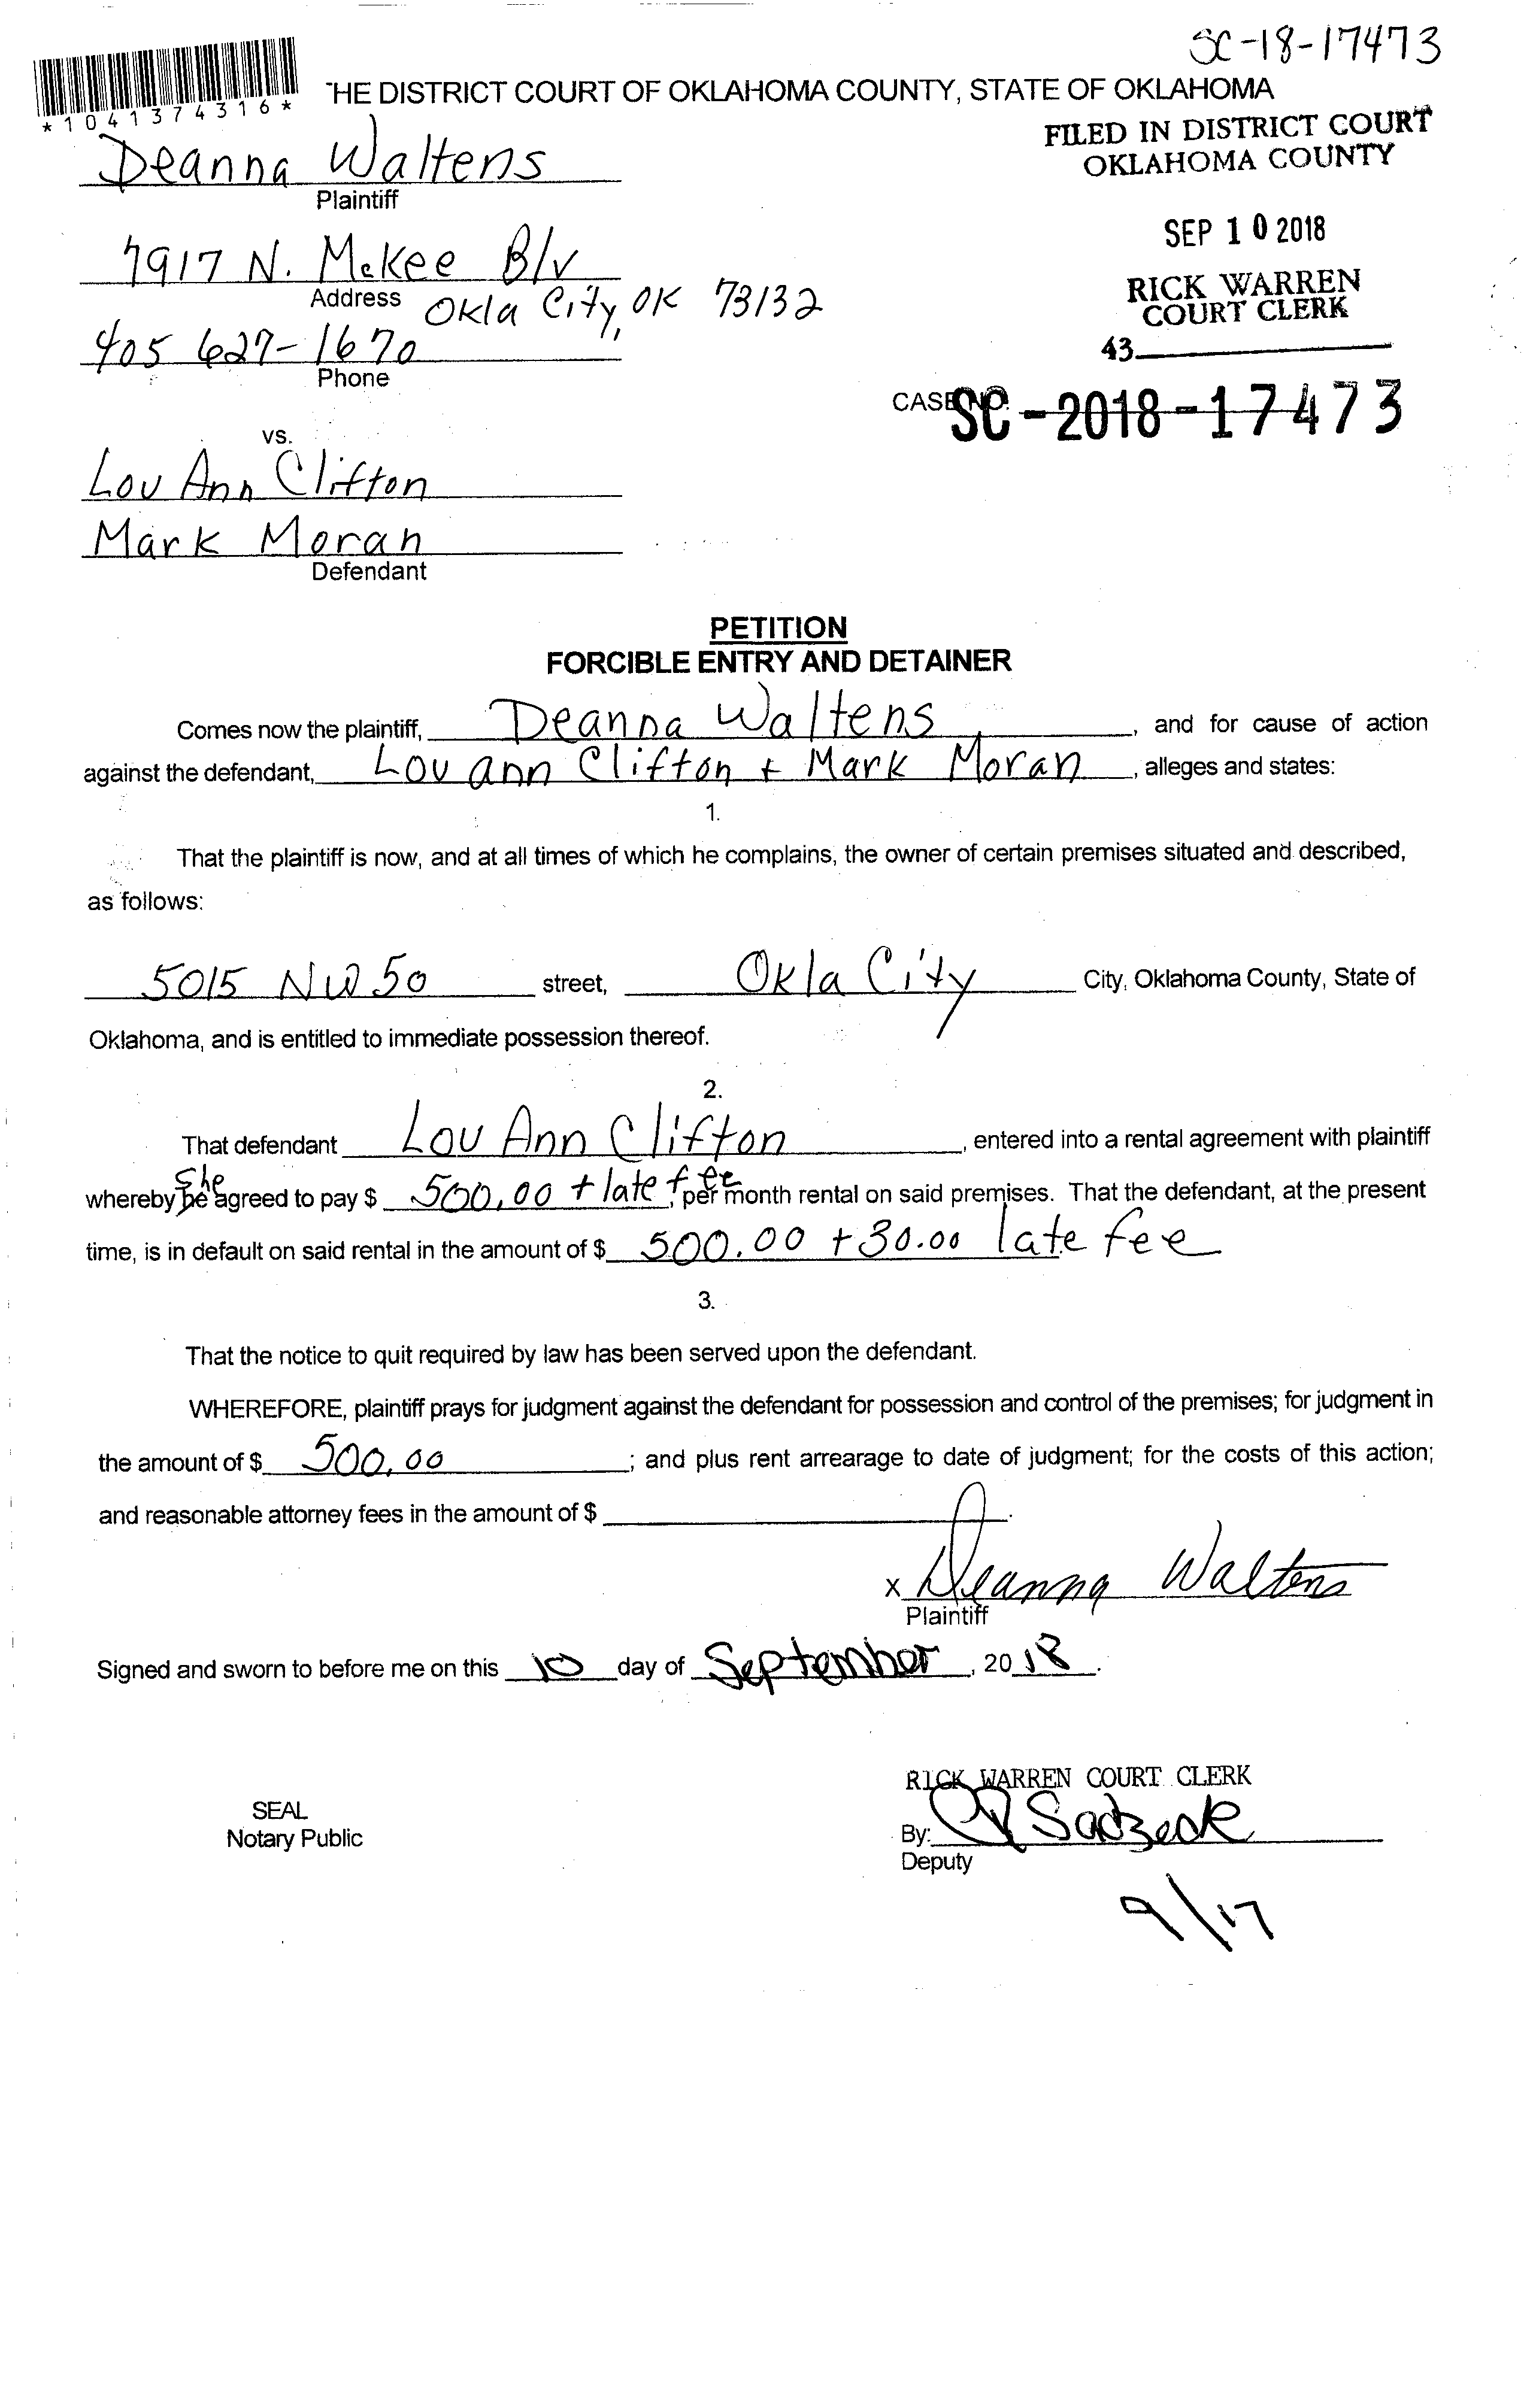 SC-18-17473
*1041374316*
THE DISTRICT COURT OF OKLAHOMA COUNTY, STATE OF OKLAHOMA
FILED IN DISTRICT COURT
OKLAHOMA COUNTY
Deanna Waltens
Plaintiff
SEP 10 2018
7917 N. McKee Blv
Address Okla City, OK 73132
RICK WARREN
COURT CLERK
405 627-1670
Phone
43
CASE NO. SC-2018-17473
vs.
Lou Ann Clifton
Mark Moran
Defendant
PETITION
FORCIBLE ENTRY AND DETAINER
Comes now the plaintiff, Deanna Waltens, and for cause of action
against the defendant, Lou ann Clifton + Mark Moran, alleges and states:
1.
That the plaintiff is now, and at all times of which he complains, the owner of certain premises situated and described,
as follows:
5015 NW 50 street, Okla City City, Oklahoma County, State of
Oklahoma, and is entitled to immediate possession thereof.
2.
That defendant Lou Ann Clifton, entered into a rental agreement with plaintiff
whereby she agreed to pay $ 500.00 + late fee, per month rental on said premises. That the defendant, at the present
time, is in default on said rental in the amount of $ 500.00 + 30.00 late fee
3.
That the notice to quit required by law has been served upon the defendant.
WHEREFORE, plaintiff prays for judgment against the defendant for possession and control of the premises; for judgment in
the amount of $ 500.00; and plus rent arrearage to date of judgment; for the costs of this action;
and reasonable attorney fees in the amount of $
x Deanna Waltens
Plaintiff
Signed and sworn to before me on this 10 day of September, 2018.
RICK WARREN COURT CLERK
SEAL
Notary Public
By:
Deputy
9/17